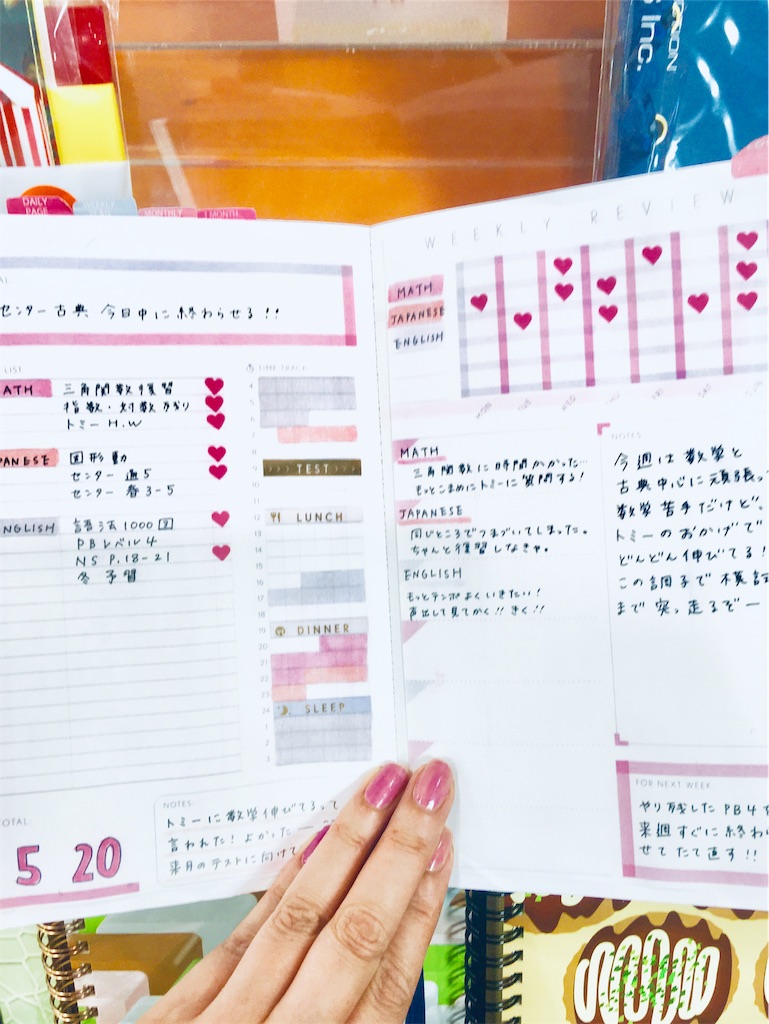 Inc.
DAILY
PAGE
MONTHLY
センター古典 今日中に終わらせる!!
LIST
TIME TRACK
MATH
三角関数復習
指数・対数
トミー H.W
JAPANESE
図形動
センター 過5
センター 春3-5
ENGLISH
語法1000
PBレベル4
NS P.18-21
冬予習
4
5
6
7
8
9
TEST
10
11
12
LUNCH
13
14
15
16
17
18
19
DINNER
20
21
22
23
24
SLEEP
1
2
3
TOTAL:
5 20
NOTES:
トミーに数学伸びてるって
言われた!よかったー
来月のテストに向けて
WEEKLY REVIEW
MATH
JAPANESE
ENGLISH
MON
TUE
WED
THU
FRI
SAT
SUN
MATH
三角関数に時間かかった…
もっとこまめにトミーに質問する!
JAPANESE
同じところでつまづいてしまった。
ちゃんと復習しなきゃ。
ENGLISH
もっとテンポよくいきたい!
声出して見てかく!!きく!!
NOTES
今週は数学と
古典中心に頑張っ
数学苦手だけど。
トミーのおかげで
どんどん伸びてる!
この調子で模試
まで突っ走るぞー
FOR NEXT WEEK
やり残したPB4を
来週すぐに終わ
せてたて直す!!